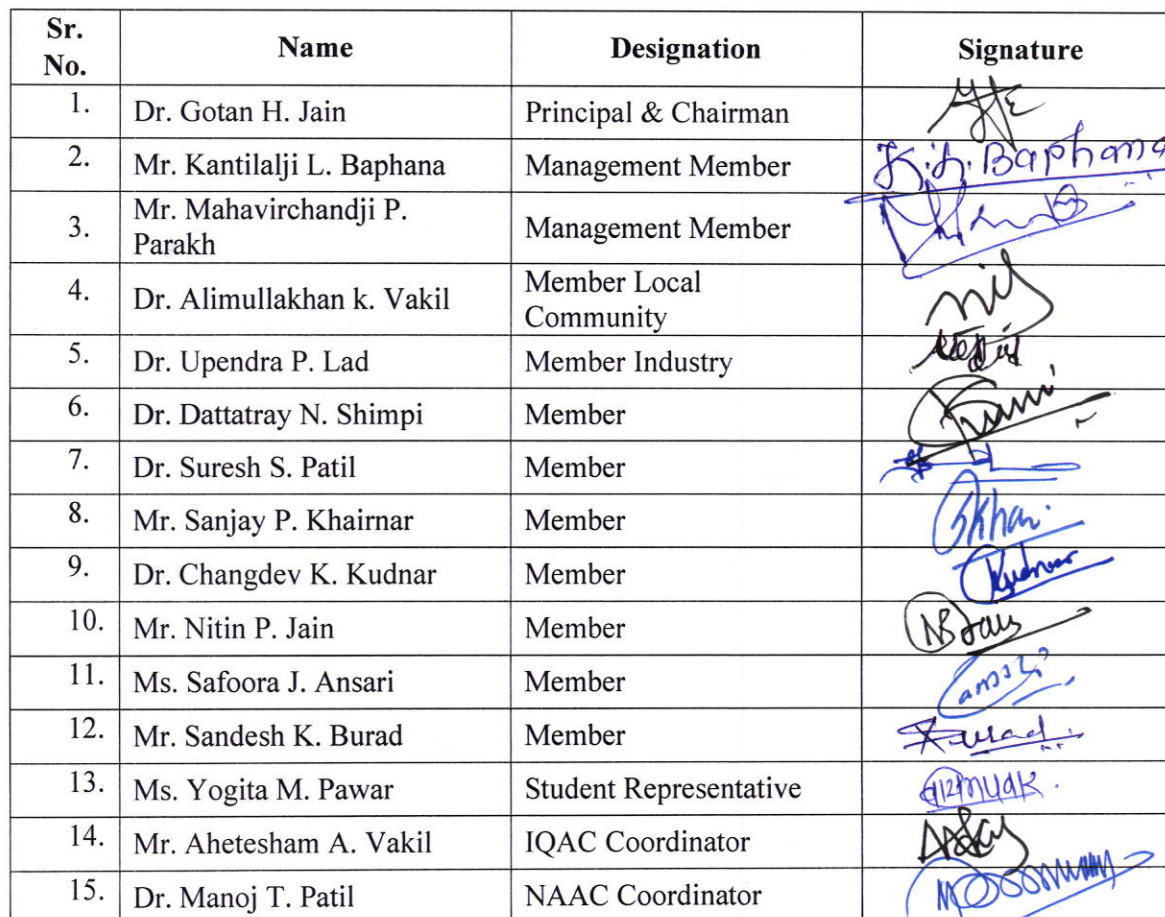 Sr. No. Name Designation Signature
1. Dr. Gotan H. Jain Principal & Chairman
2. Mr. Kantilalji L. Baphana Management Member K.L. Baphana
3. Mr. Mahavirchandji P. Parakh Management Member
4. Dr. Alimullakhan k. Vakil Member Local Community
5. Dr. Upendra P. Lad Member Industry
6. Dr. Dattatray N. Shimpi Member
7. Dr. Suresh S. Patil Member
8. Mr. Sanjay P. Khairnar Member
9. Dr. Changdev K. Kudnar Member Kudnar
10. Mr. Nitin P. Jain Member
11. Ms. Safoora J. Ansari Member
12. Mr. Sandesh K. Burad Member
13. Ms. Yogita M. Pawar Student Representative
14. Mr. Ahetesham A. Vakil IQAC Coordinator
15. Dr. Manoj T. Patil NAAC Coordinator